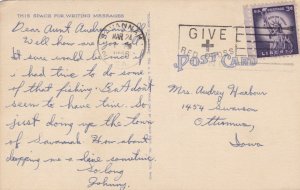 THIS SPACE FOR WRITING MESSAGES
Dear Aunt Audrey
Well how are you
It sure would be nice if
I had time to do some
of that fishing. But I dont
seem to have time. So
just doing up the town
of Savannah. How about
dropping me a line sometime.
So long
Johnny.
SAVANNAH
MAR 24
GIVE
RED CROSS
U.S. POSTAGE 3¢
LIBERTY
POST CARD
Mrs. Audrey Harbour
1454 Swanson
Ottumwa,
Iowa